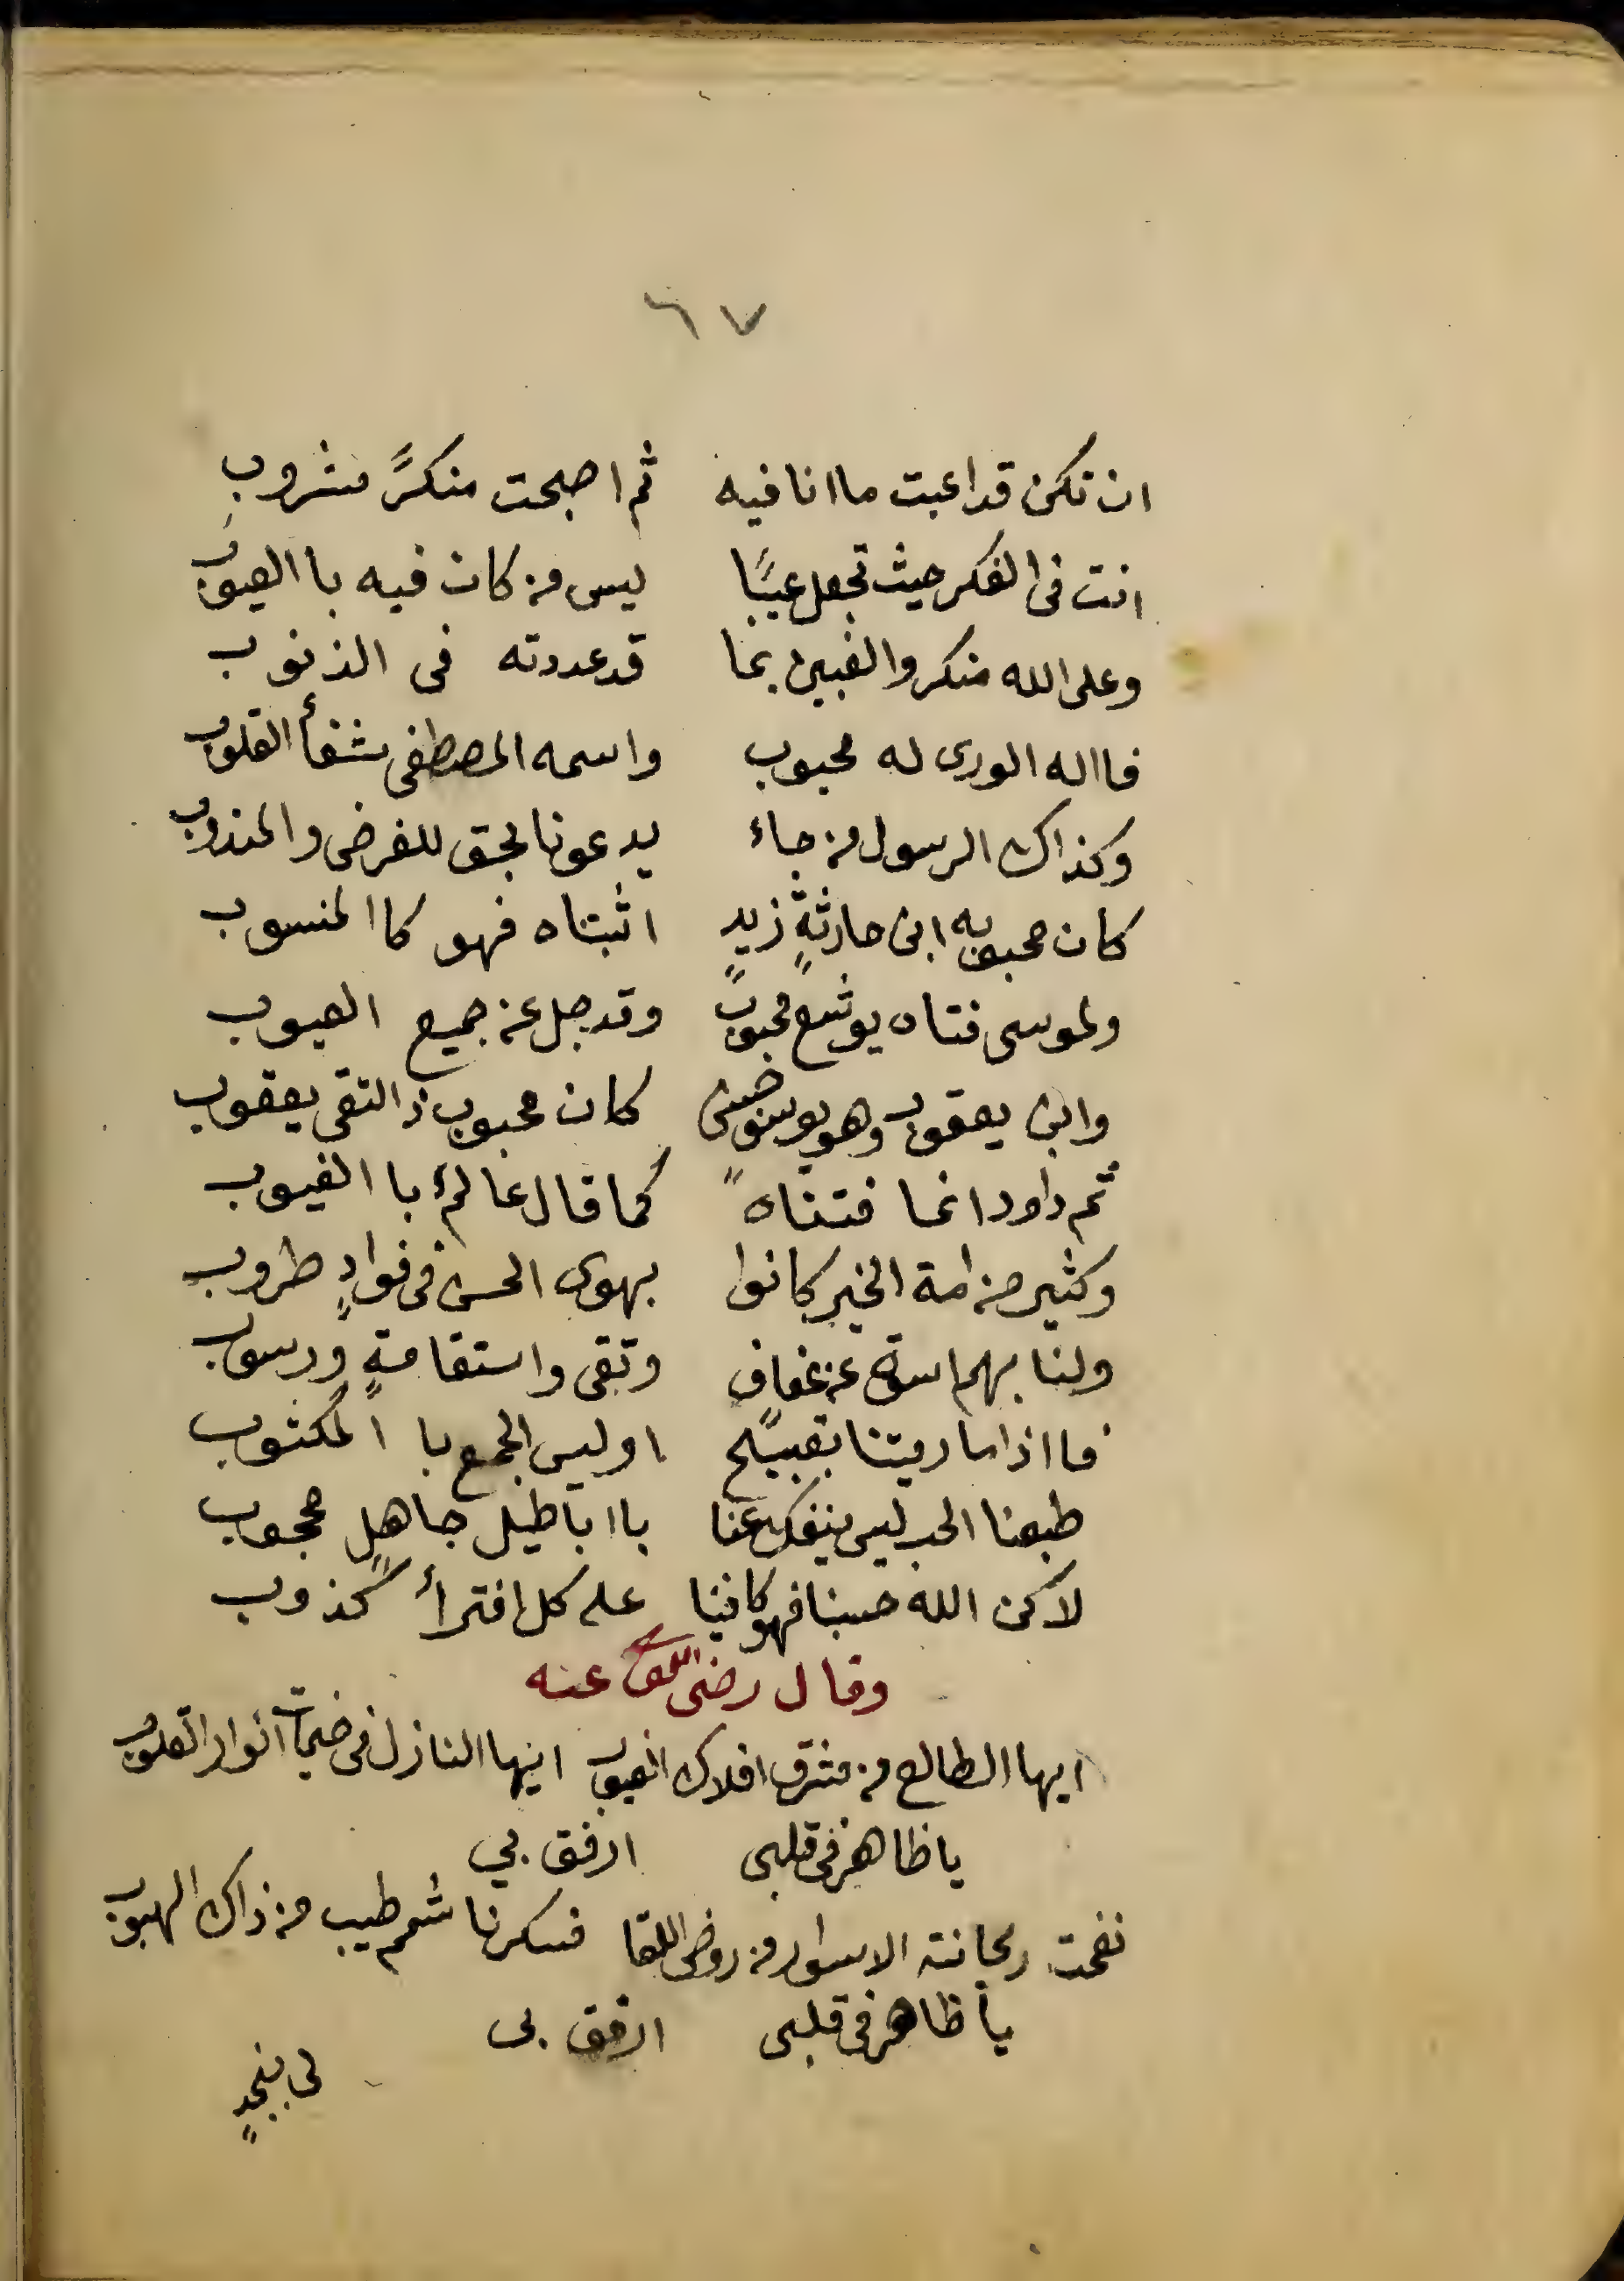 ٦٧
ان تكن قد اعبت ما انا فيه ثم اصبحت منكرً مشروب
انت فى الفكر حيث تجعل عيبًا ليس من كان فيه با العيوب
وعلى الله منكر والنبيين بما قد عددته فى الذنوب
فا اله الورى له محبوب واسمه المصطفى شفأ القلوب
وكذاك الرسول من جاء يدعونا لحق للفرض والمندوب
كان محبوبه ابن حارثةٍ زيدٍ اثبتاه فهو كا المنسوب
ولموسى فتاه يوشع محبوبً وقد جل عن جميع العيوب
وابن يعقوب وهو يوسف كان محبوب ذالتقى يعقوب
ثم داود انما فتناهً كما قال عالمٌ با الغيوب
وكثير من امة الخير كانوا بهوى الحسن فى فوادٍ طروب
ولنا بهم اسوة عن عفاف وتقى واستقامةٍ ورسوب
فا اذا ما رميتنا بقبيحٍ اوليس الجمع با المكثوب
طبعنا الحب ليس ينفك عنا با اباطيل جاهلٍ محجوب
لاكن الله حسبنا فهو كافينا على كل افترأ كذوب
وقال رضى الله عنه
ايها الطالع من مشرق افلاك الغيوب ايها النازل فى خيمات انوار القلوب
يا ظاهر فى قلبى ارفق بي
نفحت ريحانة الاسرار من روض اللقا فسكرنا شم طيب من ذاك الهبوب
يا ظاهر فى قلبى ارفق بى
لى بنجدٍ